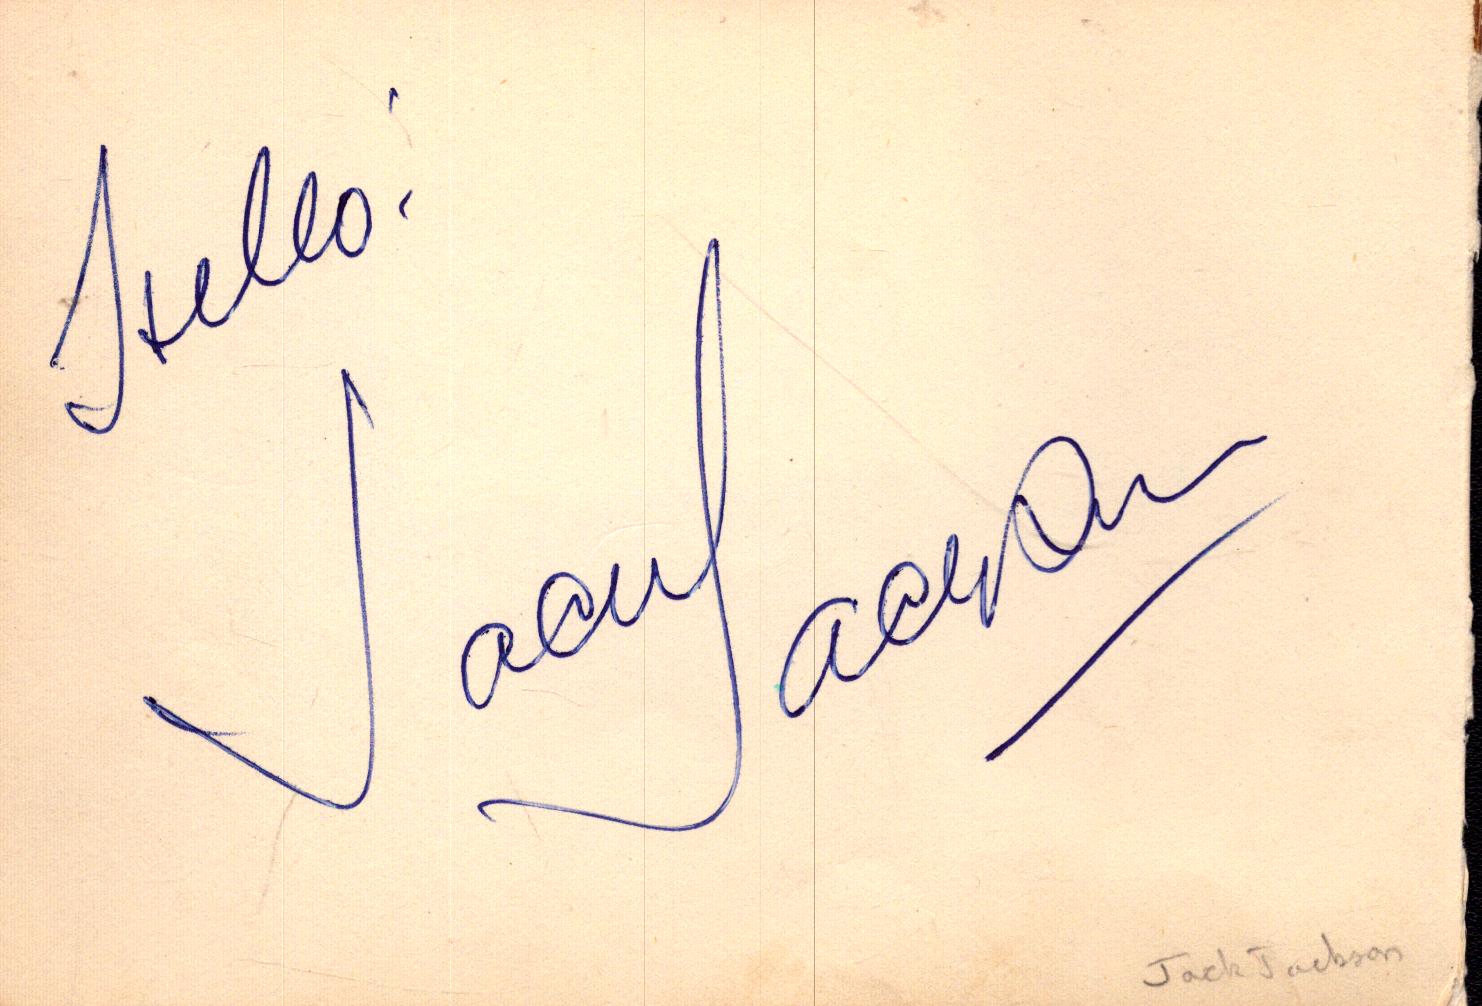 Hello!
Jack Jackson
Jack Jackson